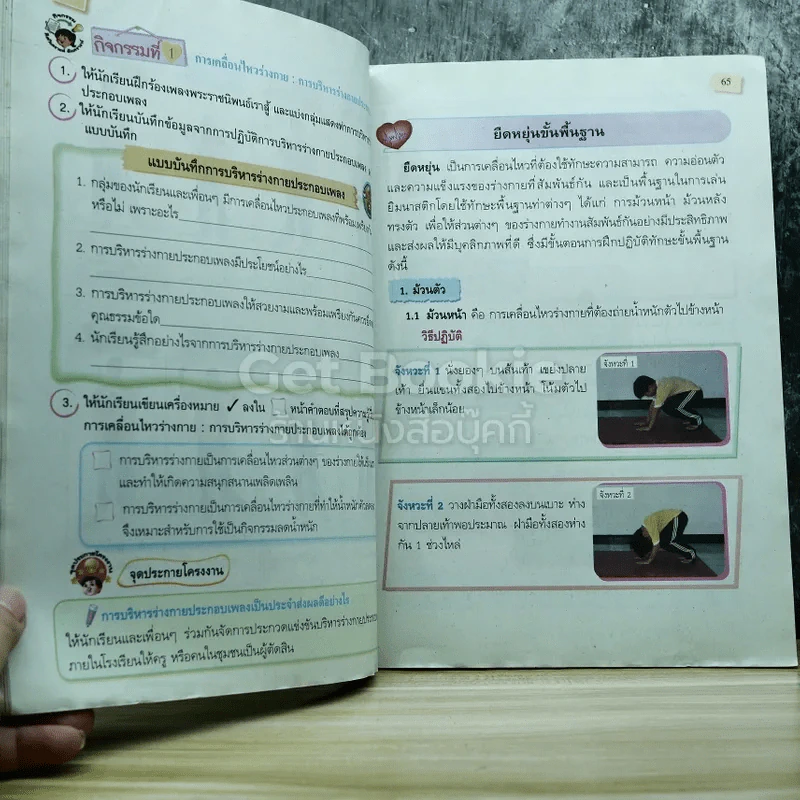 กิจกรรมที่ 1
การเคลื่อนไหวร่างกาย : การบริหารร่างกาย
1. ให้นักเรียนฝึกร้องเพลงพระราชนิพนธ์เราสู้ และแบ่งกลุ่มแสดงท่าการบริหาร
ประกอบเพลง
2. ให้นักเรียนบันทึกข้อมูลจากการปฏิบัติการบริหารร่างกายประกอบเพลง
แบบบันทึก
แบบบันทึกการบริหารร่างกายประกอบเพลง
1. กลุ่มของนักเรียนและเพื่อนๆ มีการเคลื่อนไหวประกอบเพลงที่พร้อมเพรียง
หรือไม่ เพราะอะไร
2. การบริหารร่างกายประกอบเพลงมีประโยชน์อย่างไร
3. การบริหารร่างกายประกอบเพลงให้สวยงามและพร้อมเพรียงกันควร
คุณธรรมข้อใด
4. นักเรียนรู้สึกอย่างไรจากการบริหารร่างกายประกอบเพลง
3. ให้นักเรียนเขียนเครื่องหมาย ✓ ลงใน ☐ หน้าคำตอบที่สรุปความรู้
การเคลื่อนไหวร่างกาย : การบริหารร่างกายประกอบเพลงได้ถูกต้อง
☐ การบริหารร่างกายเป็นการเคลื่อนไหวส่วนต่างๆ ของร่างกายให้
และทำให้เกิดความสนุกสนานเพลิดเพลิน
☐ การบริหารร่างกายเป็นการเคลื่อนไหวร่างกายที่ทำให้น้ำหนักตัวลดลง
จึงเหมาะสำหรับการใช้เป็นกิจกรรมลดน้ำหนัก
จุดประกายโครงงาน
การบริหารร่างกายประกอบเพลงเป็นประจำส่งผลดีอย่างไร
ให้นักเรียนและเพื่อนๆ ร่วมกันจัดการประกวดแข่งขันบริหารร่างกาย
ภายในโรงเรียนให้ครู หรือคนในชุมชนเป็นผู้ตัดสิน
65
ยืดหยุ่นขั้นพื้นฐาน
ยืดหยุ่น เป็นการเคลื่อนไหวที่ต้องใช้ทักษะความสามารถ ความอ่อนตัว
และความแข็งแรงของร่างกายที่สัมพันธ์กัน และเป็นพื้นฐานในการเล่น
ยิมนาสติกโดยใช้ทักษะพื้นฐานท่าต่างๆ ได้แก่ การม้วนหน้า ม้วนหลัง
ทรงตัว เพื่อให้ส่วนต่างๆ ของร่างกายทำงานสัมพันธ์กันอย่างมีประสิทธิภาพ
และส่งผลให้มีบุคลิกภาพที่ดี ซึ่งมีขั้นตอนการฝึกปฏิบัติทักษะขั้นพื้นฐาน
ดังนี้
1. ม้วนตัว
1.1 ม้วนหน้า คือ การเคลื่อนไหวร่างกายที่ต้องถ่ายน้ำหนักตัวไปข้างหน้า
วิธีปฏิบัติ
จังหวะที่ 1 นั่งยองๆ บนส้นเท้า เขย่งปลาย
เท้า ยื่นแขนทั้งสองไปข้างหน้า โน้มตัวไป
ข้างหน้าเล็กน้อย
จังหวะที่ 1
จังหวะที่ 2 วางฝ่ามือทั้งสองลงบนเบาะ ห่าง
จากปลายเท้าพอประมาณ ฝ่ามือทั้งสองห่าง
กัน 1 ช่วงไหล่
จังหวะที่ 2
Get Bookie
ร้านหนังสือบุ๊คกี้